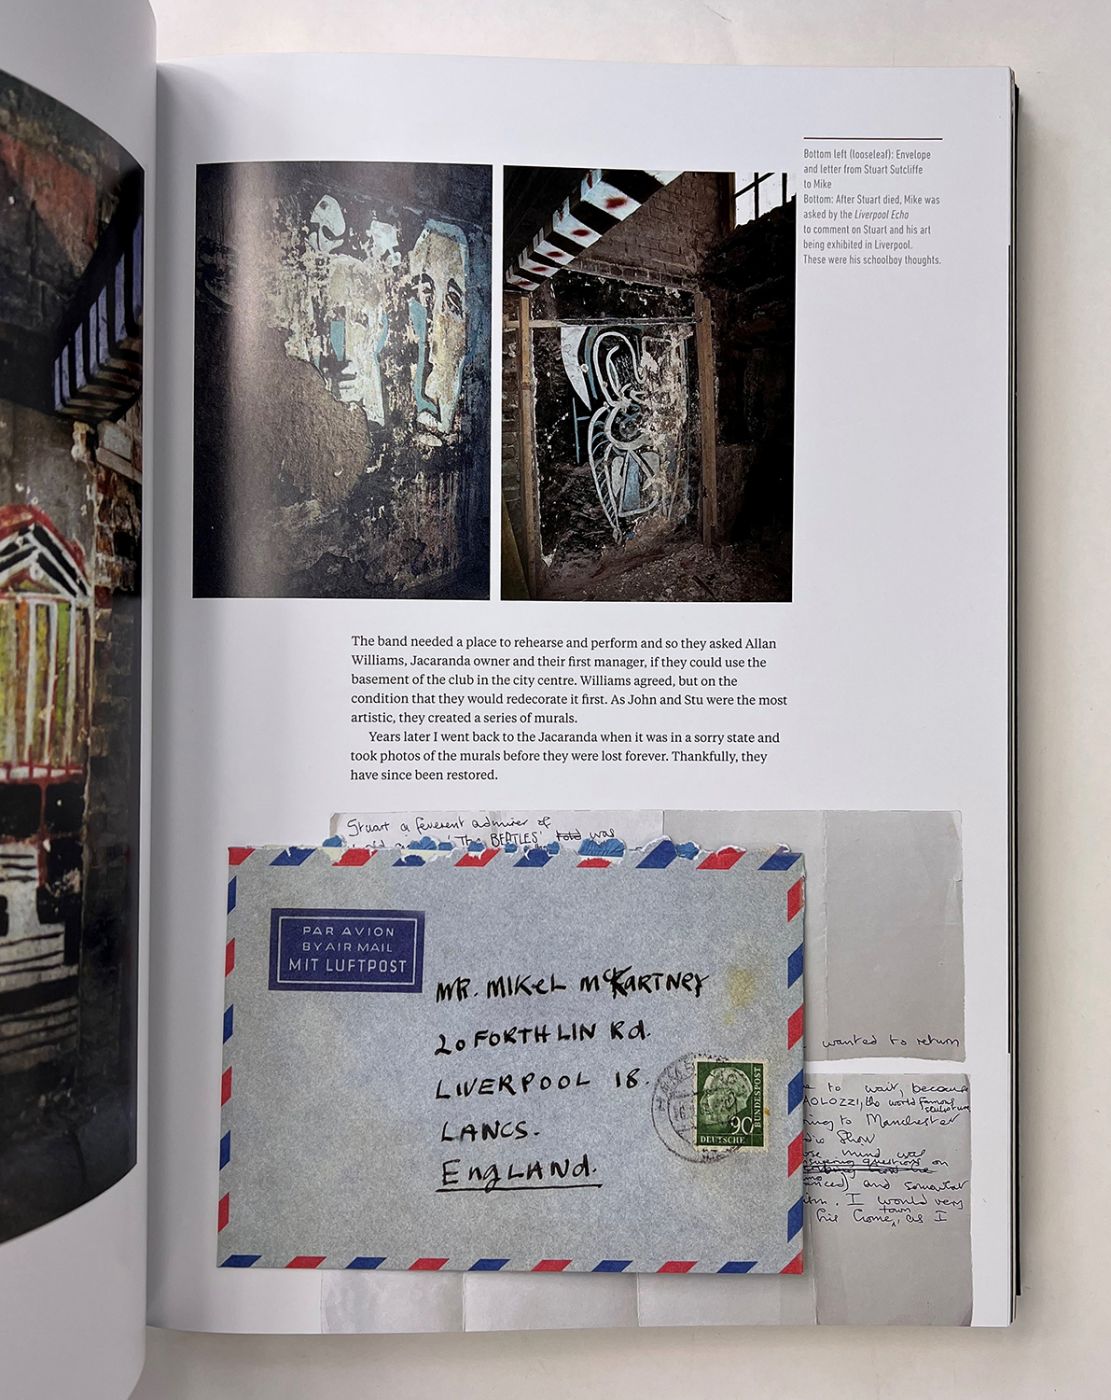 Bottom left (looseleaf): Envelope
and letter from Stuart Sutcliffe
to Mike
Bottom: After Stuart died, Mike was
asked by the Liverpool Echo
to comment on Stuart and his art
being exhibited in Liverpool.
These were his schoolboy thoughts.
The band needed a place to rehearse and perform and so they asked Allan
Williams, Jacaranda owner and their first manager, if they could use the
basement of the club in the city centre. Williams agreed, but on the
condition that they would redecorate it first. As John and Stu were the most
artistic, they created a series of murals.
Years later I went back to the Jacaranda when it was in a sorry state and
took photos of the murals before they were lost forever. Thankfully, they
have since been restored.
Stuart a feverent admirer of
'The BEATLES' told was
PAR AVION
BY AIR MAIL
MIT LUFTPOST
MR. MIKEL McKARTNEY
20 FORTHLIN Rd.
LIVERPOOL 18.
LANCS.
ENGLAND.
90
DEUTSCHE
BUNDESPOST
wanted to return
to wait, because
AOLOZZI, the world famous
sculpture
to Manchester
Show
mind was
answering questions on
and somewhat
I would very
town
his home, as I